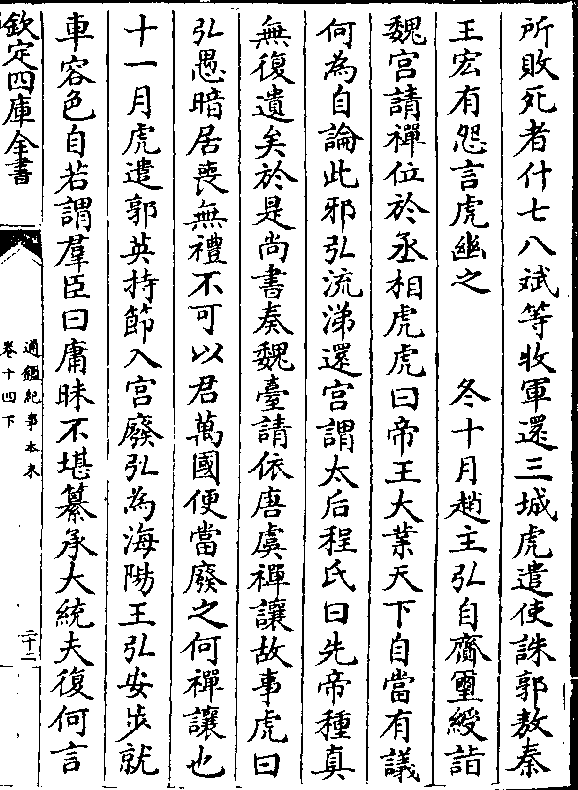 所敗死者什七八斌等收軍還三城虎遣使誅郭敖秦
王宏有怨言虎幽之　冬十月趙主弘自齎璽綬詣
魏宫請禪位於丞相虎虎曰帝王大業天下自當有議
何為自論此邪弘流涕還宫謂太后程氏曰先帝種真
無復遺矣於是尚書奏魏臺請依唐虞禪讓故事虎曰
弘愚暗居喪無禮不可以君萬國便當廢之何禪讓也
十一月虎遣郭英持節入宫廢弘為海陽王弘安步就
車容色自若謂羣臣曰庸昧不堪纂承大統夫復何言
欽定四庫全書
通鑑紀事本末
卷十四下
二十二